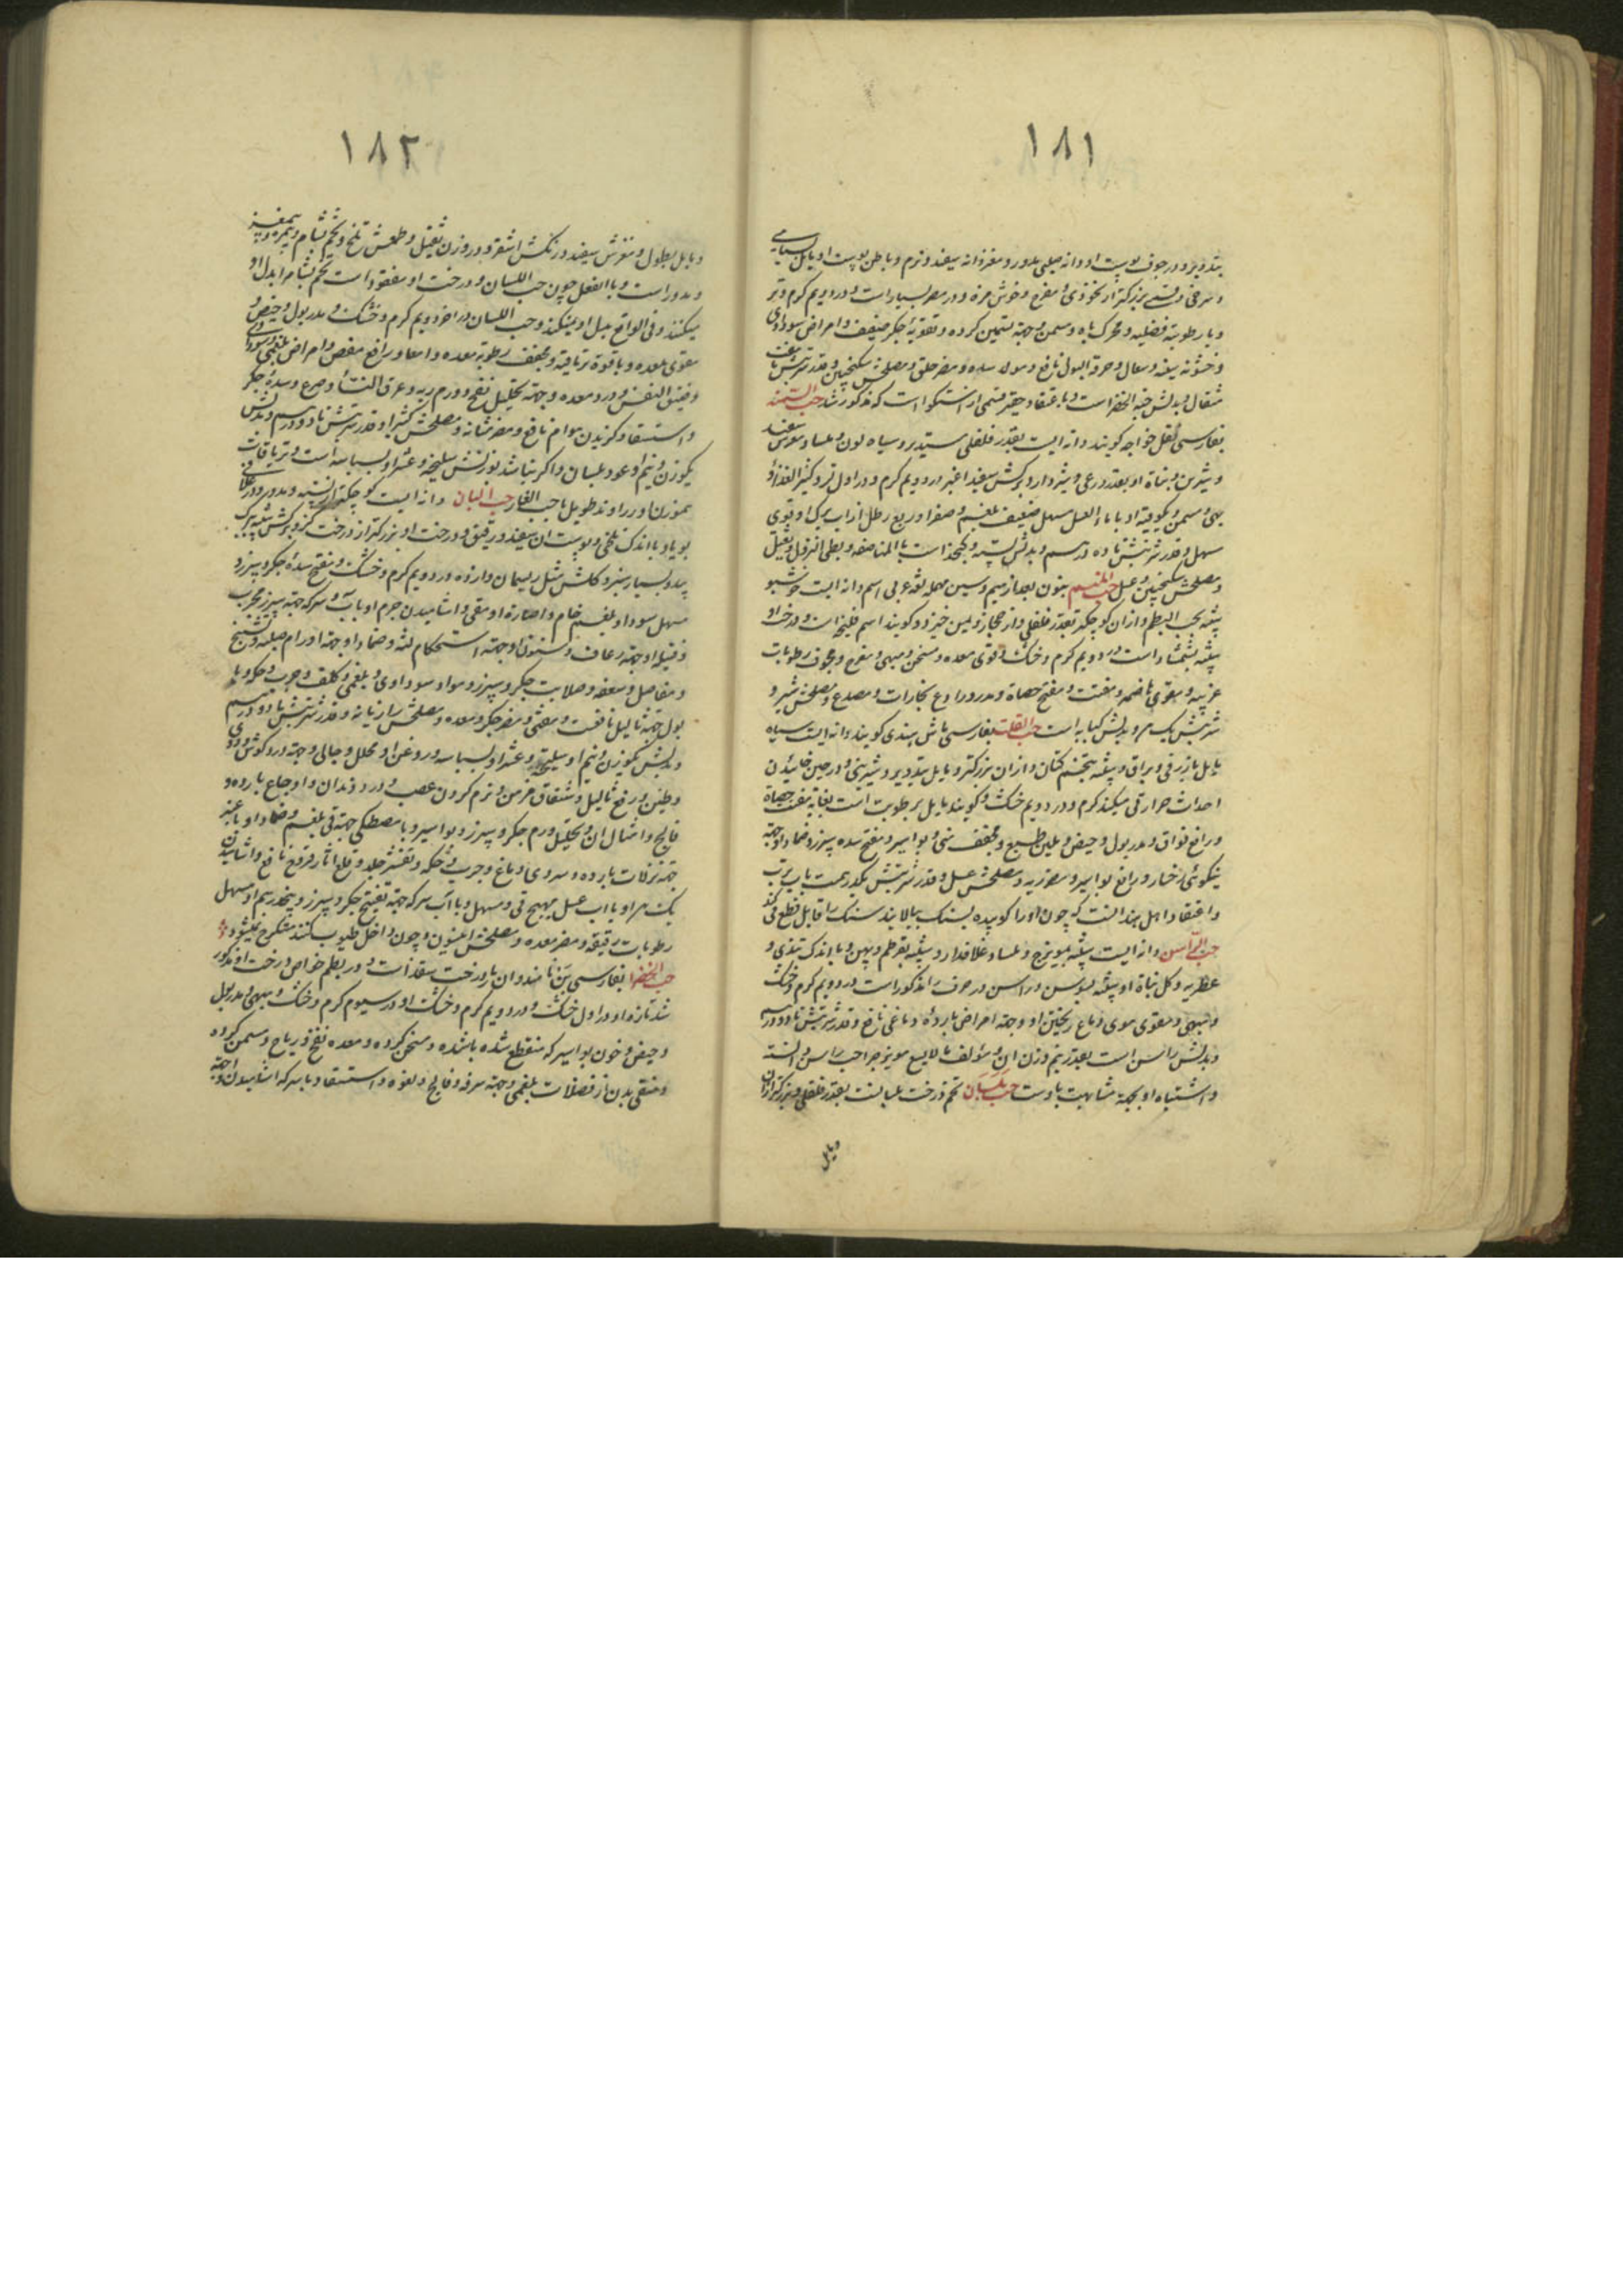 ۱۸۱
بتدویر و در جوف پوست او دانه صلبی مدور و مغز دانه سفید و نرم و باطن پوست او مایل بسیاهی
و سرخی و قسمی بزرگتر از نخودی و مفرح و خوش مزه و در مصر بسیار است و در دویم گرم و تر
و با رطوبة فضلیه و محرک باه و مسمن و جهة تسمین گرده و تقویة جگر ضعیف و امراض سوداوی
و خشونة سینه و سعال و حرقة البول نافع و مولد سده و مضر حلق و مصلحش سکنجبین و قدر شربتش تا هفت
مثقال و بدلش حبة الخضرا است و باعتقاد حقیر قسمی از است که مذکور شد حب السمنه
بفارسی نقل خواجه گویند دانه ایست بقدر فلفلی مستدیر و سیاه لون و املس و مغزش سفید
و شیرین و نبات او بقدر ذرعی و شیردار و برگش سفید اغبر در دویم گرم و در اول تر و کثیر الغذا و
مبهی و مسمن و یکوقیه او با ماء العسل مسهل ضعیف بلغم و صفرا و ربع رطل از آب برگ او قوی
مسهل و قدر شربتش تا ده درهم و بدلش پسته و کنجد است بالمناصفه و بطی النزول و ثقیل
و مصلحش سکنجبین و عسل حب المنسم بنون بعد از میم و سین مهمله لغة عربی اسم دانه ایست خوشبو
شبیه بحب البطم و از ان کوچکتر بقدر فلفلی و از حجاز و یمن خیزد و گویند اسم فلنجه است و درخت او
شبیه بشمشاد است در دویم گرم و خشک و مقوی معده و مسخن و مبهی و مفرح و مجفف رطوبات
غریبه و مقوی هاضمه و مفتت و مفتح حصاة و مدر و رادع بخارات و مصدع و مصلحش شیر و
شربتش یک درم و بدلش کبابه است حب القلت بفارسی ماش هندی گویند دانه ایست سیاه
مایل بازرقی و براق و شبیه بتخم کتان و از ان بزرگتر و مایل بتدویر و شیرینی و در حین خائیدن
احداث حرارتی میکند گرم و در دویم خشک و گویند مایل برطوبت است بغایة مفتت حصاة
و رافع فواق و مدر بول و حیض و ملین طبع و مجفف منی و بواسیر و مفتح سده سپرز و ضماد او جهة
نیکوئی رخسار و رافع بواسیر و مضر ریه و مصلحش عسل و قدر شربتش یکدرهمست با آب ترب
و اعتقاد اهل هند انست که چون او را کوبیده بسنک بمالند سنک را قابل قطع می کند
حب الراسن دانه ایست شبیه بمویزج و املس و غلافدار و شبیه بقرطم و پهن و با اندک تندی و
عطریه و کل نباة او شبیه بسوسن و راسن در حرف را مذکور است در دویم گرم و خشک
و مبهی و مقوی موی و مانع ریختن او و جهة امراض بارده دماغی نافع و قدر شربتش تا دو درهم
و بدلش راسن است بقدر نیم وزن ان و مؤلف مالایسع مویزج را حب راسن دانسته
و اشتباه او بجهة مشابهت باوست حب بلسان تخم درخت بلسانست بقدر فلفلی و بزرگتر از ان
و مایل
۱۸۲
و مایل بطول و مغزش سفید و رنگش اشقر و در وزن ثقیل و طعمش تلخ و تخم بشام تیره و بیمغز
و مدور است و بالفعل چون حب اللسان و درخت او مفقود است تخم بشام را بدل او
میکنند و فی الواقع بدل او نمیکند و حب اللسان در اخر دویم گرم و خشک و مدر بول و حیض و
مقوی معده و باقوة تریاقیه و مجفف رطوبة معده و امعا و رافع مغص و امراض بلغمی و سوداوی
و ضیق النفس و درد معده و جهة تحلیل نفخ و ورم ریه و عرق النسا و صرع و سده جگر
و استسقا و گزیدن هوام نافع و مضر مثانه و مصلحش کتیرا و قدر شربتش تا دو درهم و بدلش
بوزن او عود بلسان و اگر نباشد بوزنش سلیخه و عشر او بسباسه است و در تریاقات
هموزن او زراوند طویل با حب الغار حب البان دانه ایست کوچکتر از پسته و مدور و
بویا و با اندک تلخی و پوست ان سفید و رقیق و درخت او بزرگتر از درخت گز و برگش شبیه ببرگ
بید و بسیار سبز و کلش مثل ریسمان و ارزه در دویم گرم و خشک و مفتح سده جگر و سپرز و
مسهل سودا و بلغم خام و عصاره او مقی و اشامیدن جرم او با آب و سرکه جهة سپرز مجرب
و فتیله او جهة رعاف و سنون او جهة استحکام لثه و ضماد او جهة اورام صلبه و تشنج
و مفاصل و معده و صلابت جگر و سپرز و مواد سوداوی و بلغمی و کلف و جرب و حکه و با
بول جهة ثالیل نافعست و مغثی و مضر جگر و معده و مصلحش رازیانه و قدر شربتش تا دو درهم
و بدلش یکوزن و نیم او سلیخه و عشر او بسباسه و روغن او محلل و جالی و جهة درد گوش و دوی
و طنین و رفع ثالیل و شقاق مزمن و نرم کردن عصب و درد دندان و اوجاع بارده و
فالج و امثال ان و تحلیل ورم جگر و سپرز و بواسیر و با مصطکی جهة قی بلغم و ضماد او با عنبر
جهة نزلات بارده و سردی دماغ و جرب و حکه و تقشر جلد و قلع اثار قروح نافع و اشامیدن
یک درم او با اب عسل مهیج قی و مسهل و با آب سرکه جهة تفتیح جگر و سپرز و نیمدرهم او مسهل
رطوبات رقیقه و مضر معده و مصلحش انیسون و چون داخل طیوب کنند متکرج نمیشود
حب الخضرا بفارسی بن نامند و ان بار درخت سقز است و در بطم خواص درخت او مذکور
شد تازه او در اول خشک و در دویم گرم و خشک او در سیوم گرم و خشک و مبهی و مدر بول
و حیض و خون بواسیر که منقطع شده باشد و مسخن گرده و معده و نفخ و ریاح و مسمن گرده
و منقی بدن از فضلات بلغمی و جهة سرفه و فالج و لقوه و استسقا و با سرکه اشامیدن او جهة